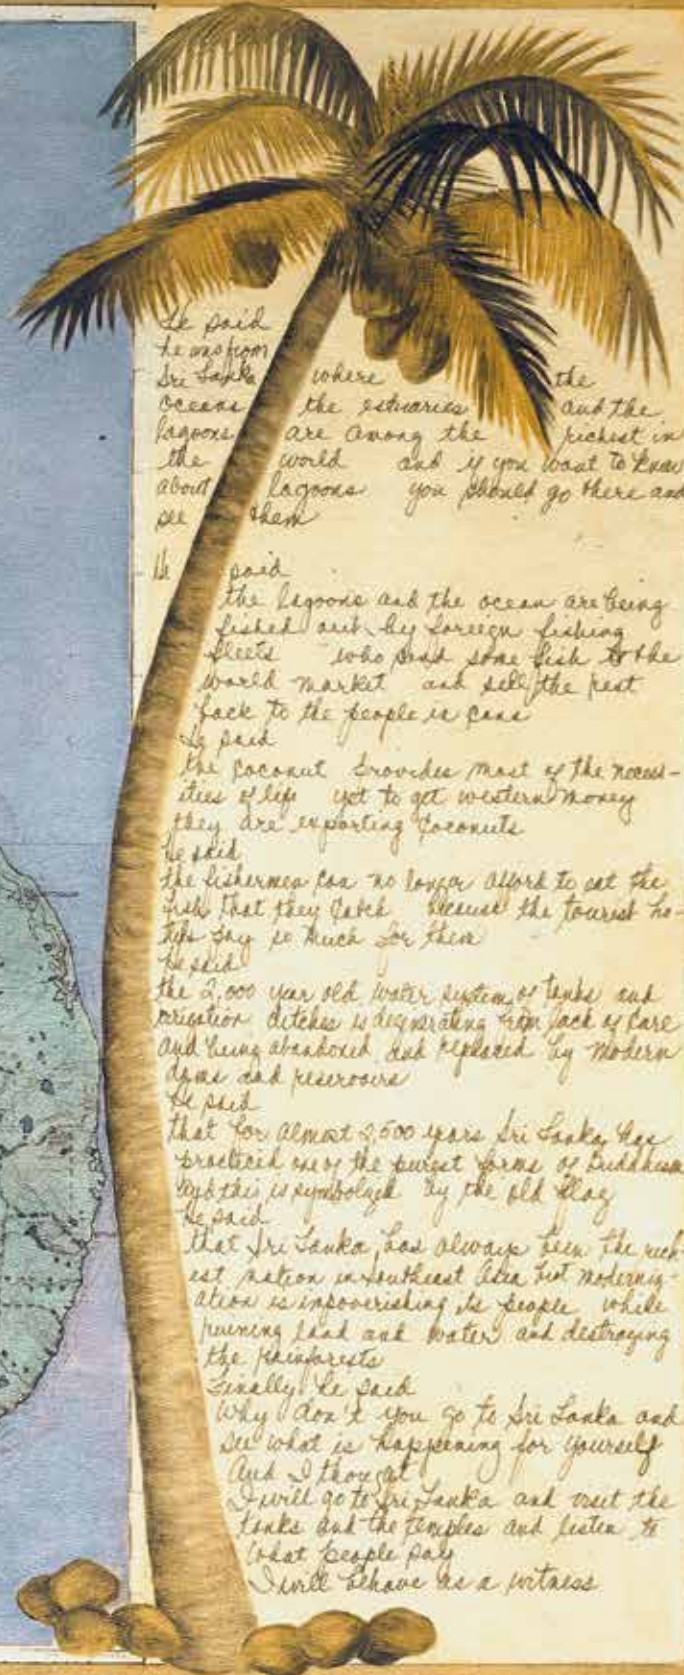 He said
he was from
Sri Lanka where the
oceans the estuaries and the
lagoons are among the richest in
the world and if you want to know
about lagoons you should go there and
see them
He said
the lagoons and the ocean are being
fished out by foreign fishing
fleets who send some fish to the
world market and sell the rest
back to the people in cans
He said
the coconut provides most of the necess-
ities of life yet to get western money
they are exporting coconuts
he said
the fishermen can no longer afford to eat the
fish that they catch because the tourist ho-
tels pay so much for them
he said
the 2,000 year old water system of tanks and
irrigation ditches is degenerating from lack of care
and being abandoned and replaced by modern
dams and reservoirs
he said
that for almost 2,500 years Sri Lanka has
practiced one of the purest forms of Buddhism
and this is symbolized by the old flag
he said
that Sri Lanka has always been the rich-
est nation in southeast Asia but moderniz-
ation is impoverishing its people while
ruining land and water and destroying
the rainforests
Finally he said
why don't you go to Sri Lanka and
see what is happening for yourself
And I thought
I will go to Sri Lanka and visit the
tanks and the temples and listen to
what people say
I will behave as a witness